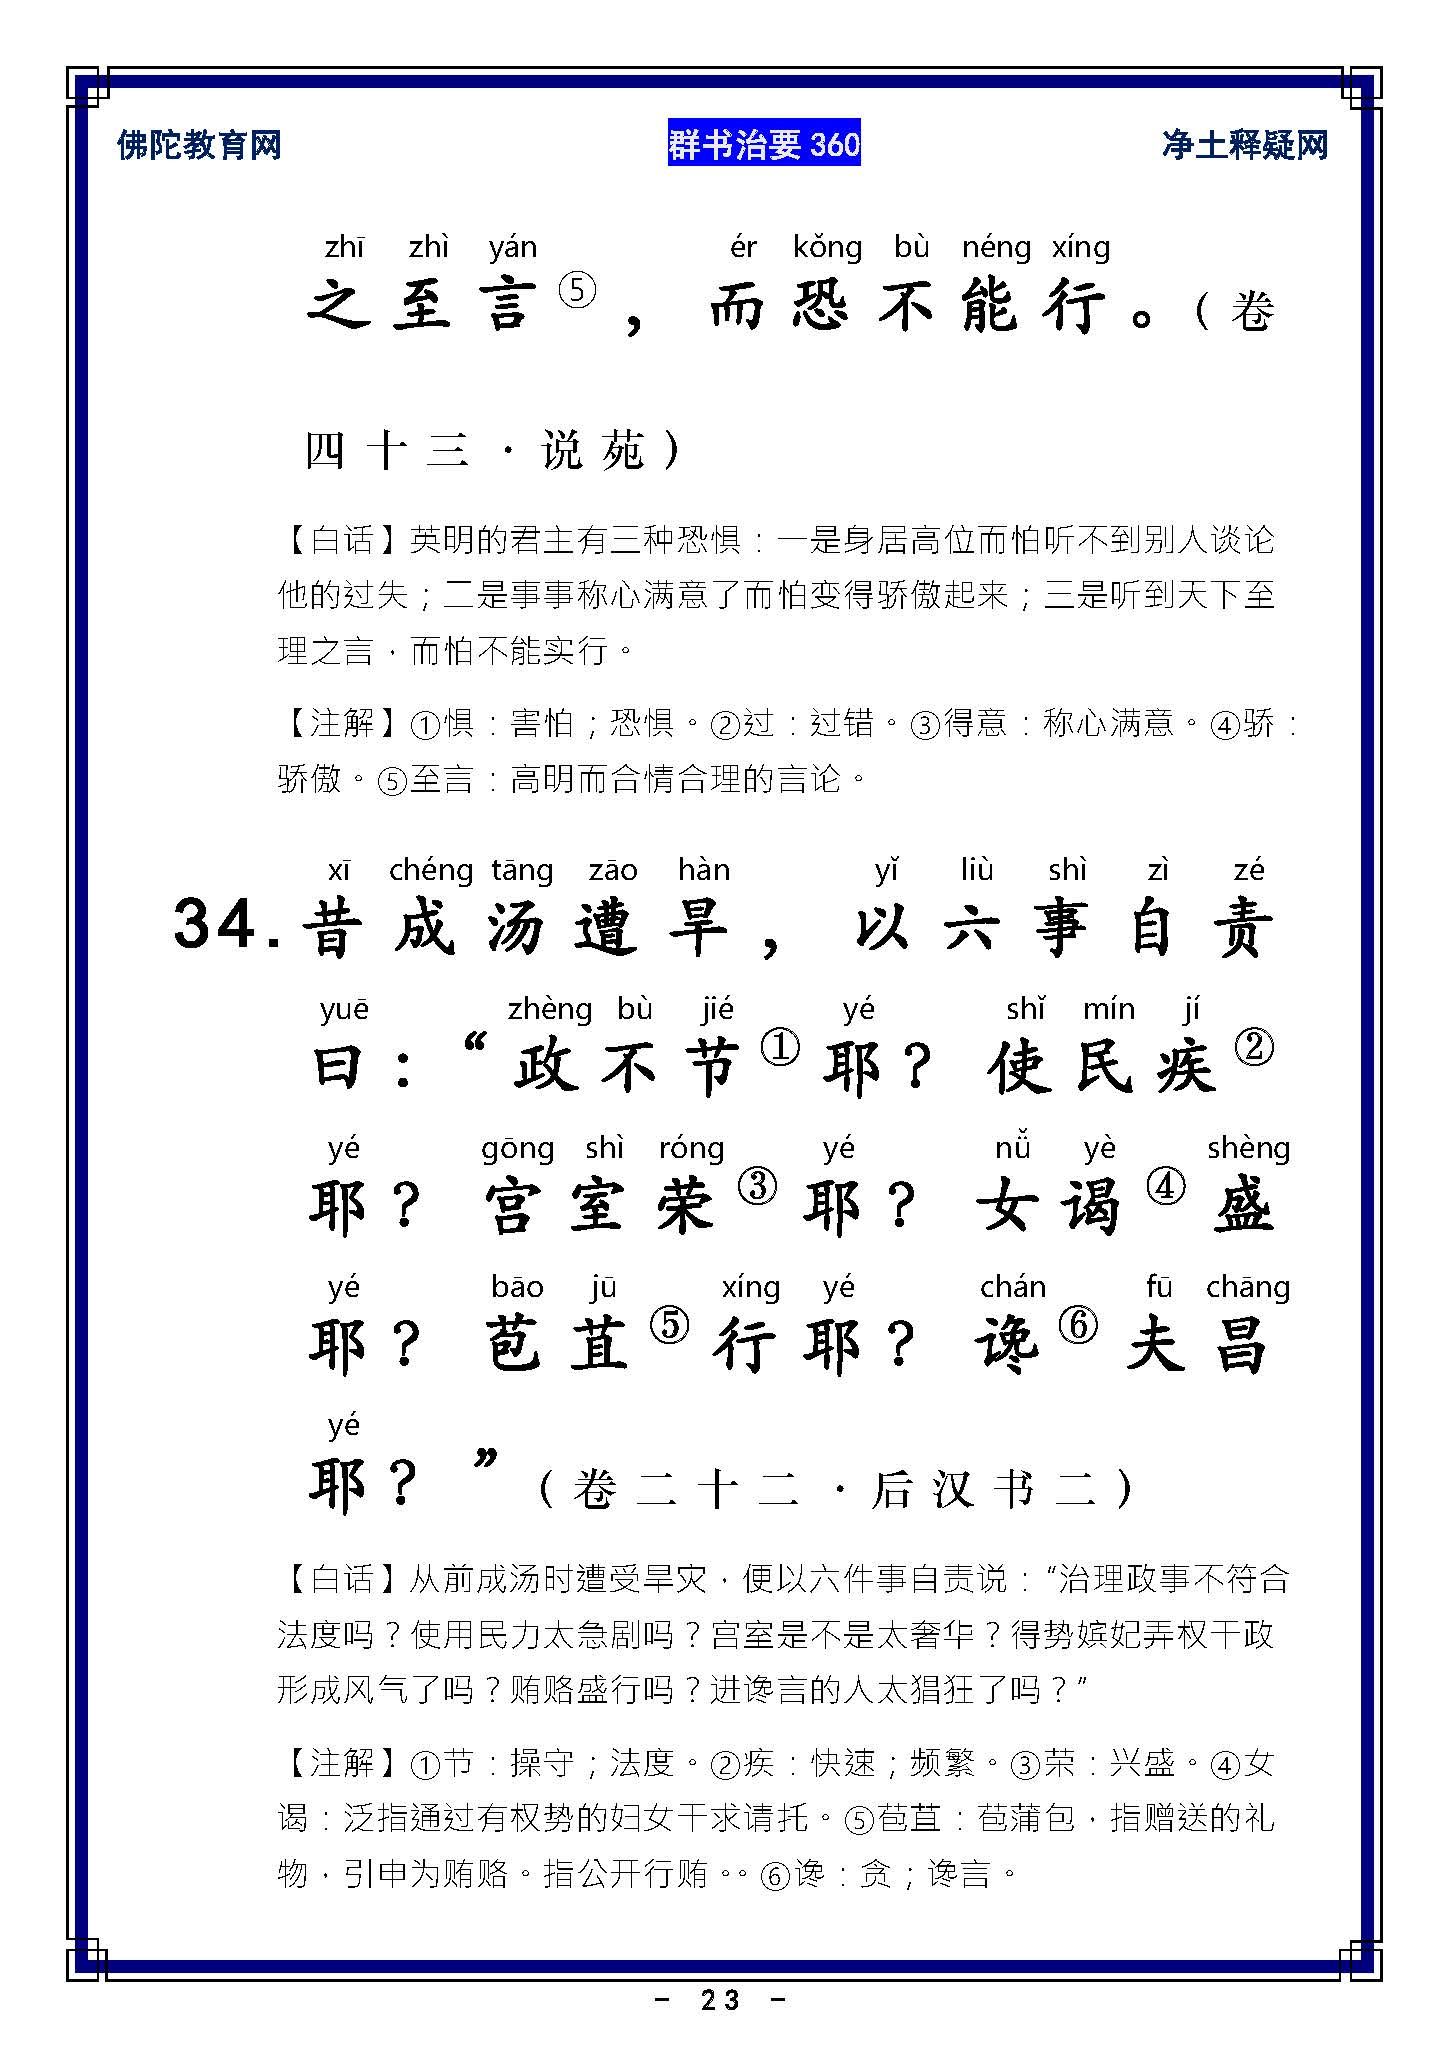 佛陀教育网 群书治要 360 净土释疑网
zhī zhì yán ér kǒng bù néng xíng
之至言⑤，而恐不能行。（卷
四十三·说苑）
【白话】英明的君主有三种恐惧：一是身居高位而怕听不到别人谈论
他的过失；二是事事称心满意了而怕变得骄傲起来；三是听到天下至
理之言，而怕不能实行。
【注解】①惧：害怕；恐惧。②过：过错。③得意：称心满意。④骄：
骄傲。⑤至言：高明而合情合理的言论。
xī chéng tāng zāo hàn yǐ liù shì zì zé
34.昔成汤遭旱，以六事自责
yuē zhèng bù jié yé shǐ mín jí
曰：“政不节①耶？使民疾②
yé gōng shì róng yé nǚ yè shèng
耶？宫室荣③耶？女谒④盛
yé bāo jū xíng yé chán fū chāng
耶？苞苴⑤行耶？谗⑥夫昌
yé
耶？”（卷二十二·后汉书二）
【白话】从前成汤时遭受旱灾，便以六件事自责说：“治理政事不符合
法度吗？使用民力太急剧吗？宫室是不是太奢华？得势嫔妃弄权干政
形成风气了吗？贿赂盛行吗？进谗言的人太猖狂了吗？”
【注解】①节：操守；法度。②疾：快速；频繁。③荣：兴盛。④女
谒：泛指通过有权势的妇女干求请托。⑤苞苴：苞蒲包，指赠送的礼
物，引申为贿赂。指公开行贿。。⑥谗：贪；谗言。
- 23 -